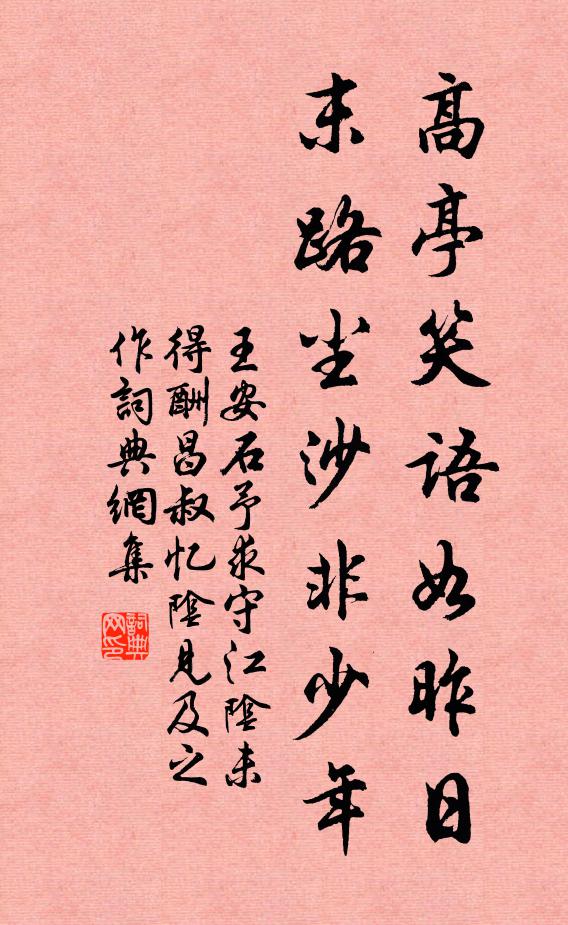 高亭笑語如昨日
末路尘沙非少年
王安石予求守江陰未
得酬昌叔忆陰見及之
作詞典網集
詞典網印